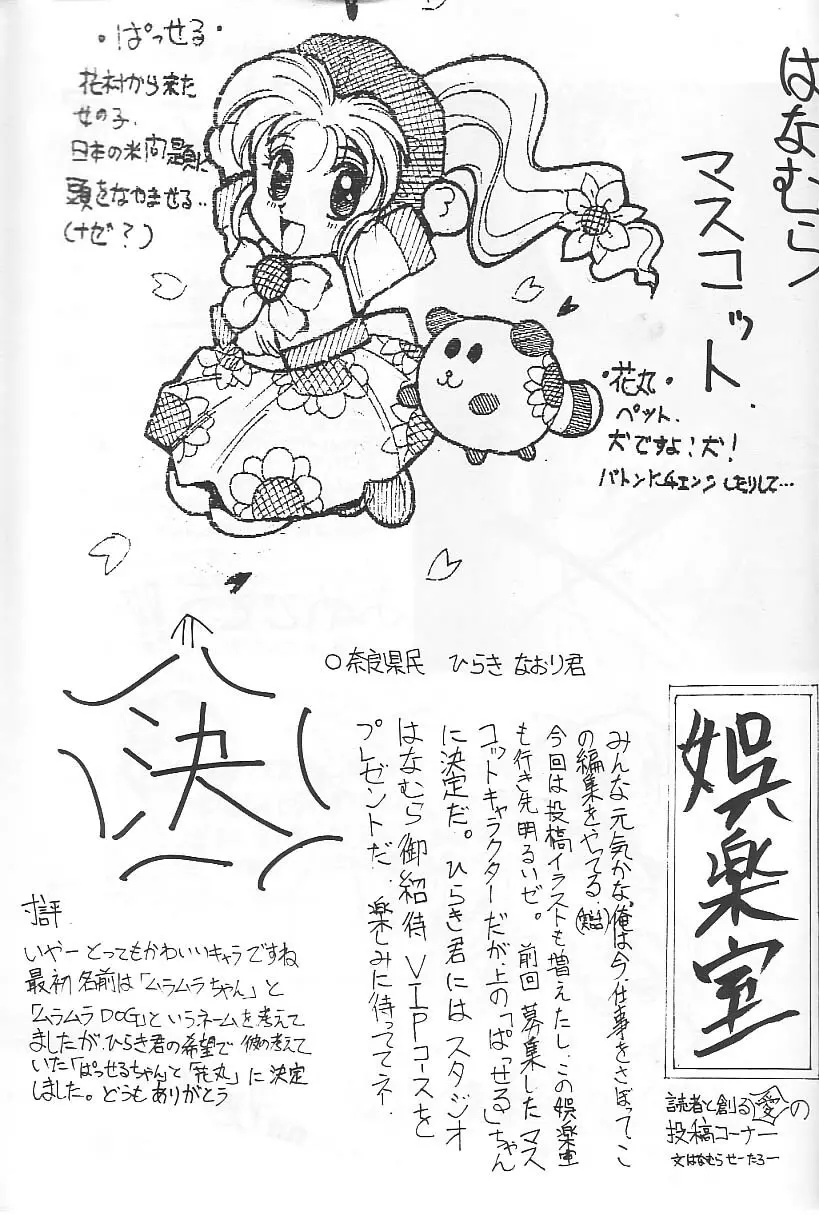 はなむら
マスコット.
・ぱっせる・
花村から来た
女の子.
日本の米問題に
頭をなやませる‥
(ナゼ?)
・花丸・
ペット.
犬ですよ!犬!
バトンにチェンジしたりして…
決
○奈良県民 ひらき なおり君
娯楽室
読者と創る愛の
投稿コーナー
文はなむらせーたろー
みんな元気かな、俺は今、仕事をさぼってこ
の編集をやってる
今回は投稿イラストも増えたし、この娯楽室
も行き先明るいぜ。前回募集したマス
コットキャラクターだが、上の「ぱっせる」ちゃん
に決定だ。ひらき君にはスタジオ
はなむら御紹待VIPコースを
プレゼントだ、楽しみに待っててネ.
寸評
いやーとってもかわいいキャラですね
最初名前は「ムラムラちゃん」と
「ムラムラDOG」というネームを考えて
ましたが、ひらき君の希望で彼の考えて
いた「ぱっせるちゃん」と「花丸」に決定
しました。どうもありがとう